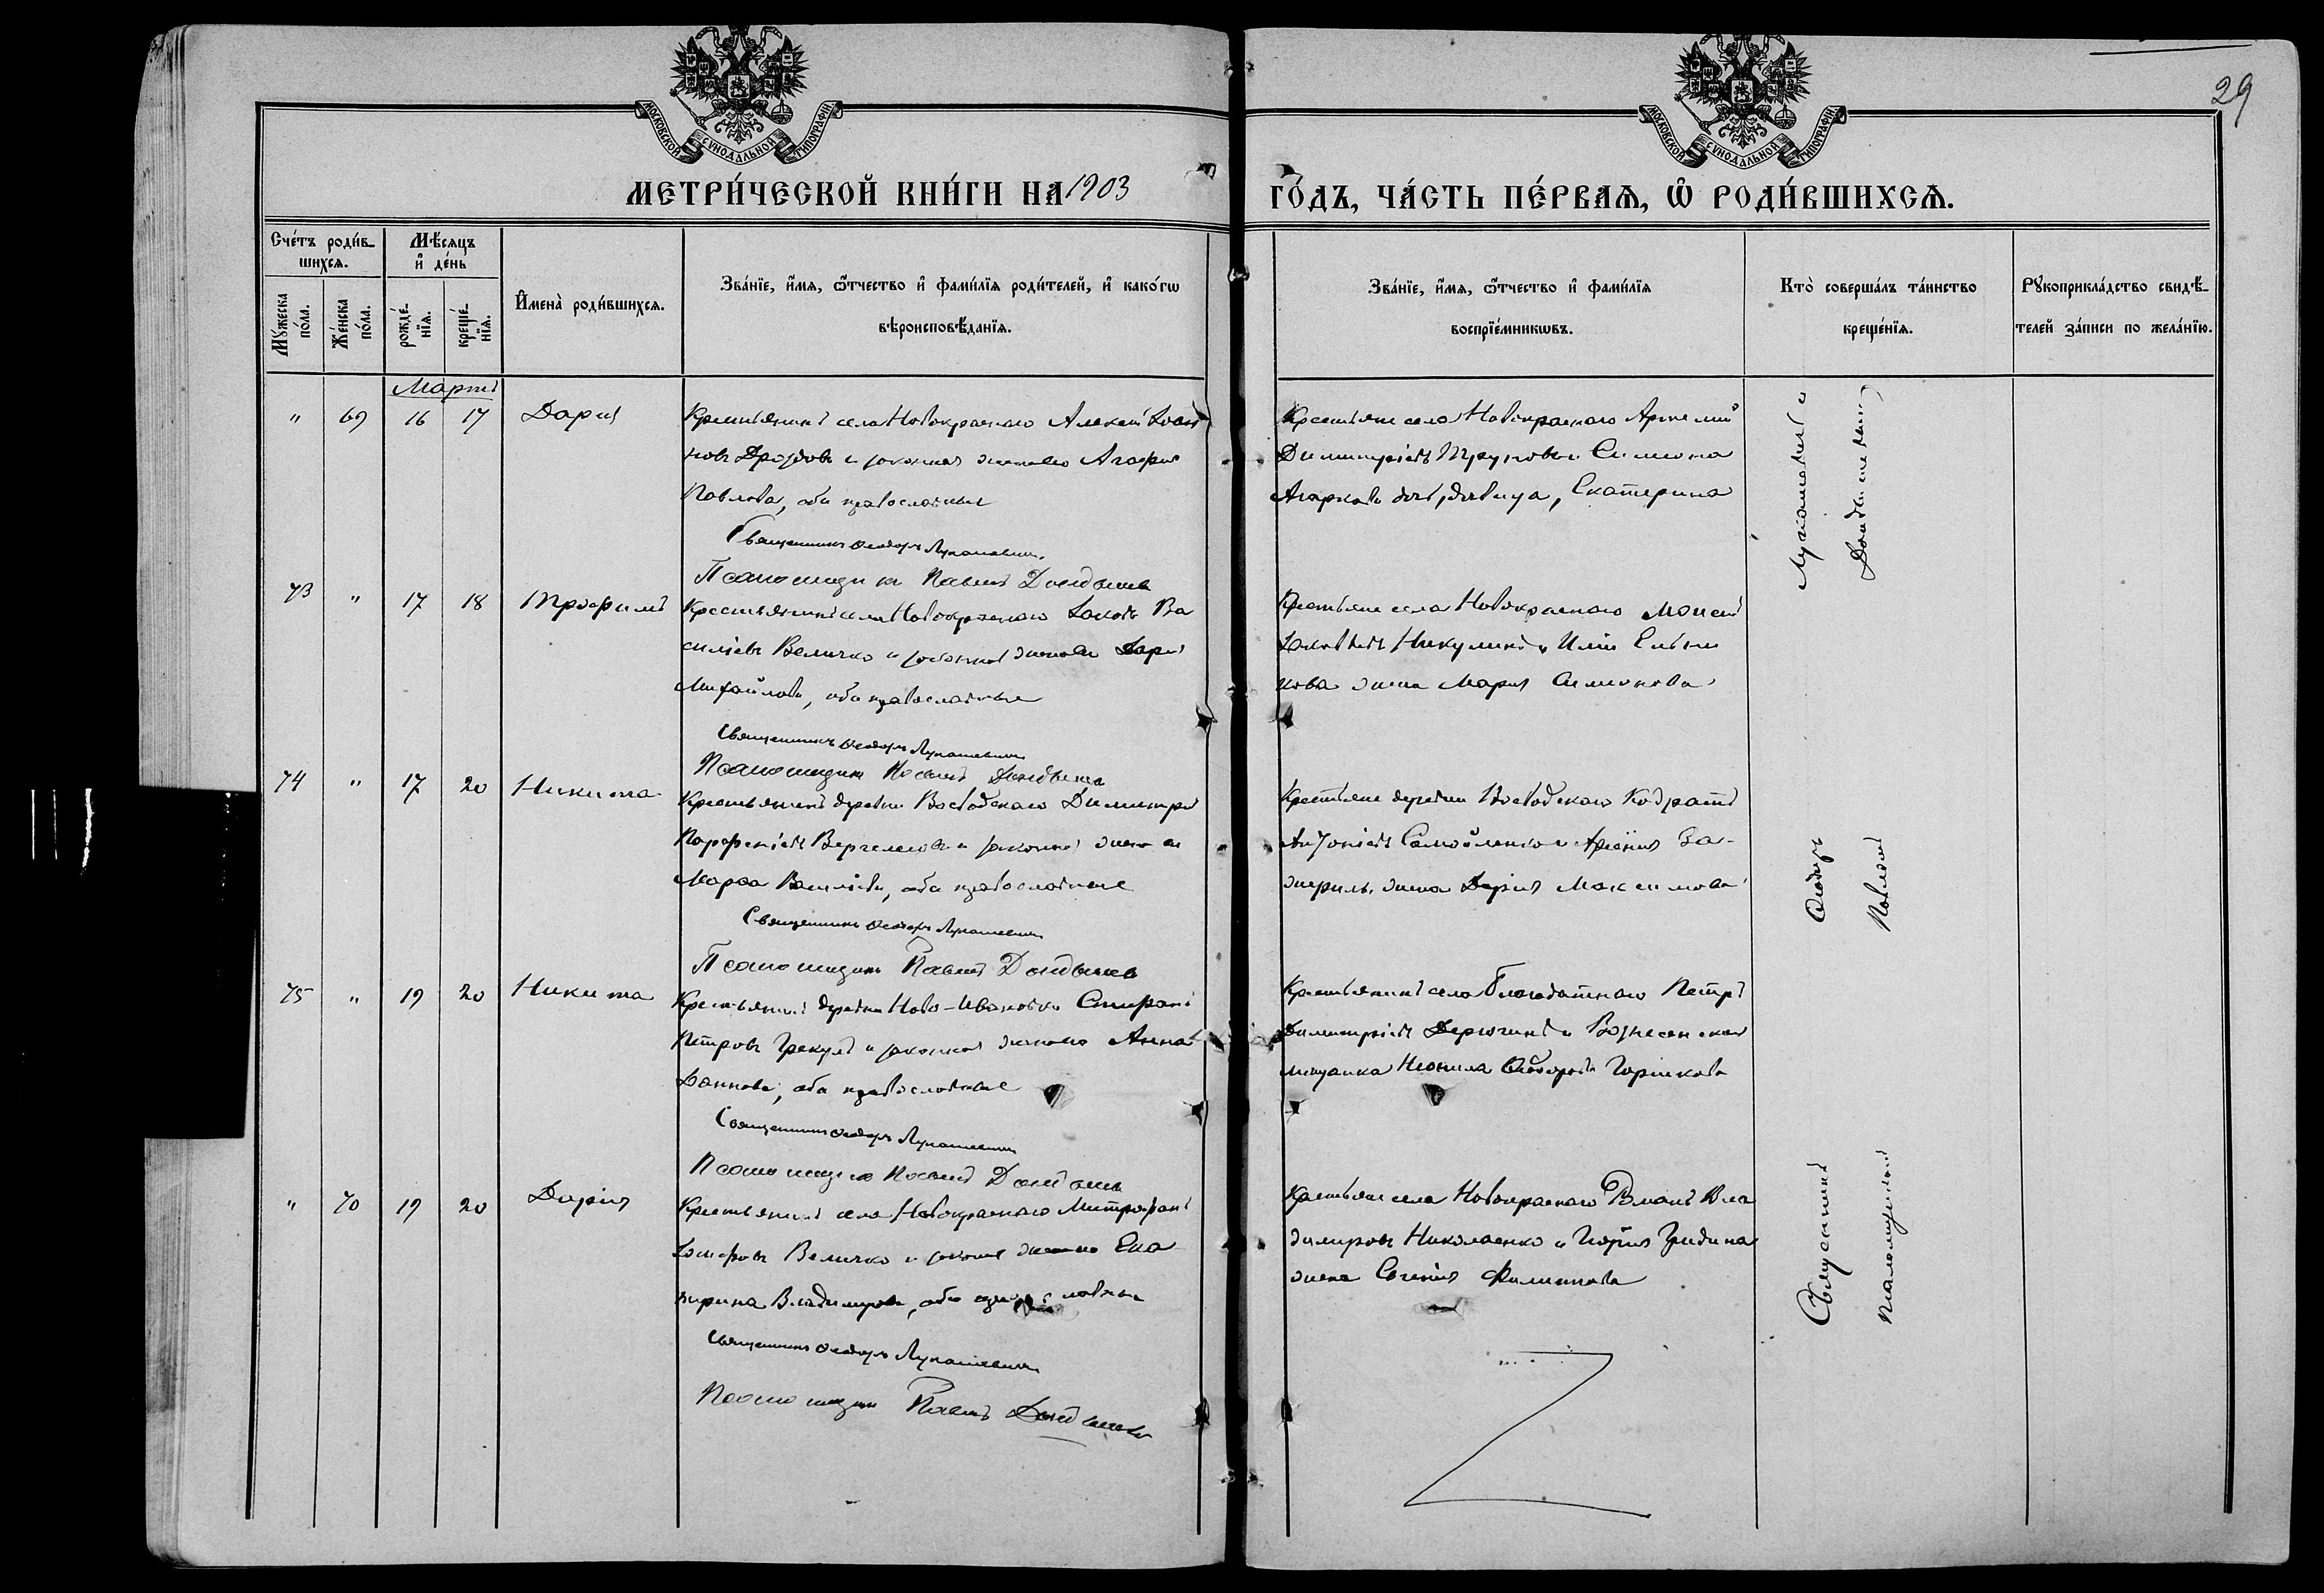 29
МОСКОВСКОЙ СѴНОДАЛЬНОЙ ТИПОГРАФІИ
МОСКОВСКОЙ СѴНОДАЛЬНОЙ ТИПОГРАФІИ
МЕТРИ́ЧЕСКОЙ КНИ́ГИ НА 1903 ГО́ДЪ, ЧА́СТЬ ПЕ́РВАѦ, Ѡ҆ РОДИ́ВШИХСѦ.
Сче́тъ роди́в-
шихсѧ.
Мꙋ́жеска по́ла.
Же́нска по́ла.
Мѣ́сѧцъ
и҆ де́нь
рожде́-
нїѧ.
креще́-
нїѧ.
И҆мена̀ роди́вшихсѧ.
Зва́нїе, и҆́мѧ, ѻ҆́тчество и҆ фами́лїѧ роди́телей, и҆ како́гѡ
вѣроисповѣ́данїѧ.
Зва́нїе, и҆́мѧ, ѻ҆́тчество и҆ фами́лїѧ
воспрїе́мникѡвъ.
Кто̀ соверша́лъ та́инство
креще́нїѧ.
Рꙋкоприкла́дство свидѣ́-
телей за́писи по жела́нїю.
Мартъ
" 69 16 17 Дарія
Крестьянинъ села Новокраснаго Алексѣй Іоан
новъ Дроздовъ и законная жена его Агафія
Павлова, оба православные
Священникъ Ѳеодоръ Лукашевичъ
Псаломщикъ Павелъ
Крестьяне села Новокраснаго Артемій
Димитріевъ и Симеона
дочь, дѣвица, Екатерина
73 " 17 18 Трофимъ
Крестьянинъ села Новокраснаго Іаковъ Ва
силіевъ Величко и законная жена его Дарія
Михайлова, оба православные
Священникъ Ѳеодоръ Лукашевичъ
Псаломщикъ Павелъ
Крестьяне села Новокраснаго Моисей
Іаковлевъ Никулинъ и Иліи
жена Марія Симеонова
74 " 17 20 Никита
Крестьянинъ деревни Воеводскаго Димитрій
Парфеніевъ и законная жена его
Марѳа Василіева, оба православные
Священникъ Ѳеодоръ Лукашевичъ
Псаломщикъ Павелъ
Крестьяне деревни Воеводскаго Кодратъ
Антоніевъ Самойленко и
жена Дарія Максимова
75 " 19 20 Никита
Крестьянинъ деревни Ново-Ивановки Стефанъ
Петровъ Грекулъ и законная жена его Анна
Іоаннова, оба православные
Священникъ Ѳеодоръ Лукашевичъ
Псаломщикъ Павелъ
Крестьянинъ села Благодатнаго Петръ
Димитріевъ Дерюгинъ и Вознесенская
мѣщанка Неонила Ѳеодорова Горшкова
" 70 19 20 Дарія
Крестьянинъ села Новокраснаго Митрофанъ
Іосифовъ Величко и законная жена его Ека
терина Владимирова, оба православные
Священникъ Ѳеодоръ Лукашевичъ
Псаломщикъ Павелъ
Крестьяне села Новокраснаго Романъ Вла
димировъ Николаенко и Георгія Гридина
жена Евгенія Филиппова
Священникъ Ѳеодоръ Лукашевичъ и
Псаломщикъ Павелъ